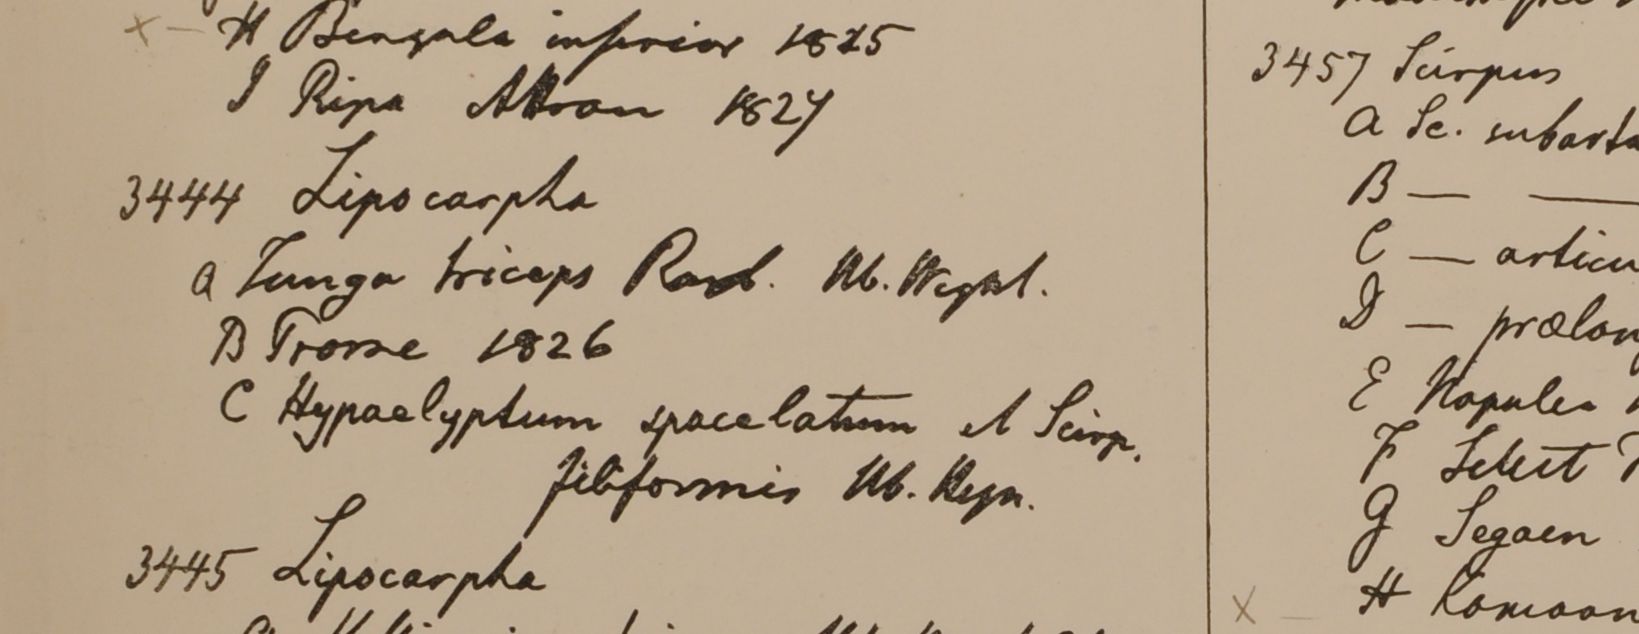 × — H Bengala inferior 1825
I Ripa Attran 1827
3444 Lipocarpha
a Tunga triceps Roxb. Hb.
B Prome 1826
C Hypaelyptum spacelatum et Scirp.
filiformis Hb. Heyn.
3445 Lipocarpha
3457 Scirpus
a Sc. subarta
B — —
C — articu
D — prælon
E Napulea
F Sehet
G Segaen
× — H Kamaon